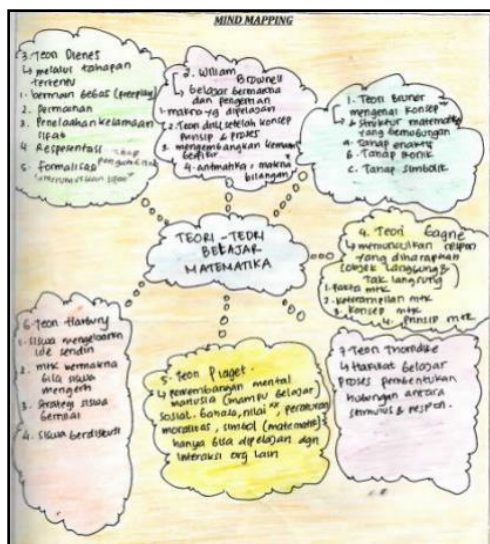 MIND MAPPING
3. Teori Dienes
↳ melalui tahapan
tertentu
1. bermain bebas (freeplay)
2. Permainan
3. Penelaahan kesamaan
sifat
4. Respesentasi
5. Formalisasi
2. William
Brownell
belajar bermakna
dan pengertian
1. makna yg dipelajari
2. Teori drill setelah konsep
prinsip & proses
3. mengembangkan
berfikir
4. aritmatika = makna
bilangan
1. Teori Bruner
mengenai konsep"
& struktur matematika
yang berhubungan
a. Tahap enaktif
b. Tahap Ikonik
c. Tahap simbolik
TEORI-TEORI
BELAJAR
MATEMATIKA
4. Teori Gagne
↳ memunculkan respon
yang diharapkan
(objek langsung &
tak langsung)
1. Fakta mtk
2. Keterampilan mtk
3. Konsep mtk
4. Prinsip mtk
6. Teori
1. siswa mengeluarkan
ide sendiri
2. mtk bermakna
bila siswa
mengerti
3. strategi siswa
4. siswa berdiskusi
5. Teori Piaget.
↳ Perkembangan mental
manusia (mampu belajar)
sosial. Bahasa, nilai", peraturan
moralitas, simbol (matematik)
hanya bisa dipelajari dgn
interaksi org lain
7. Teori Thorndike
↳ Hakikat belajar
Proses pembentukan
hubungan antara
stimulus & respon.